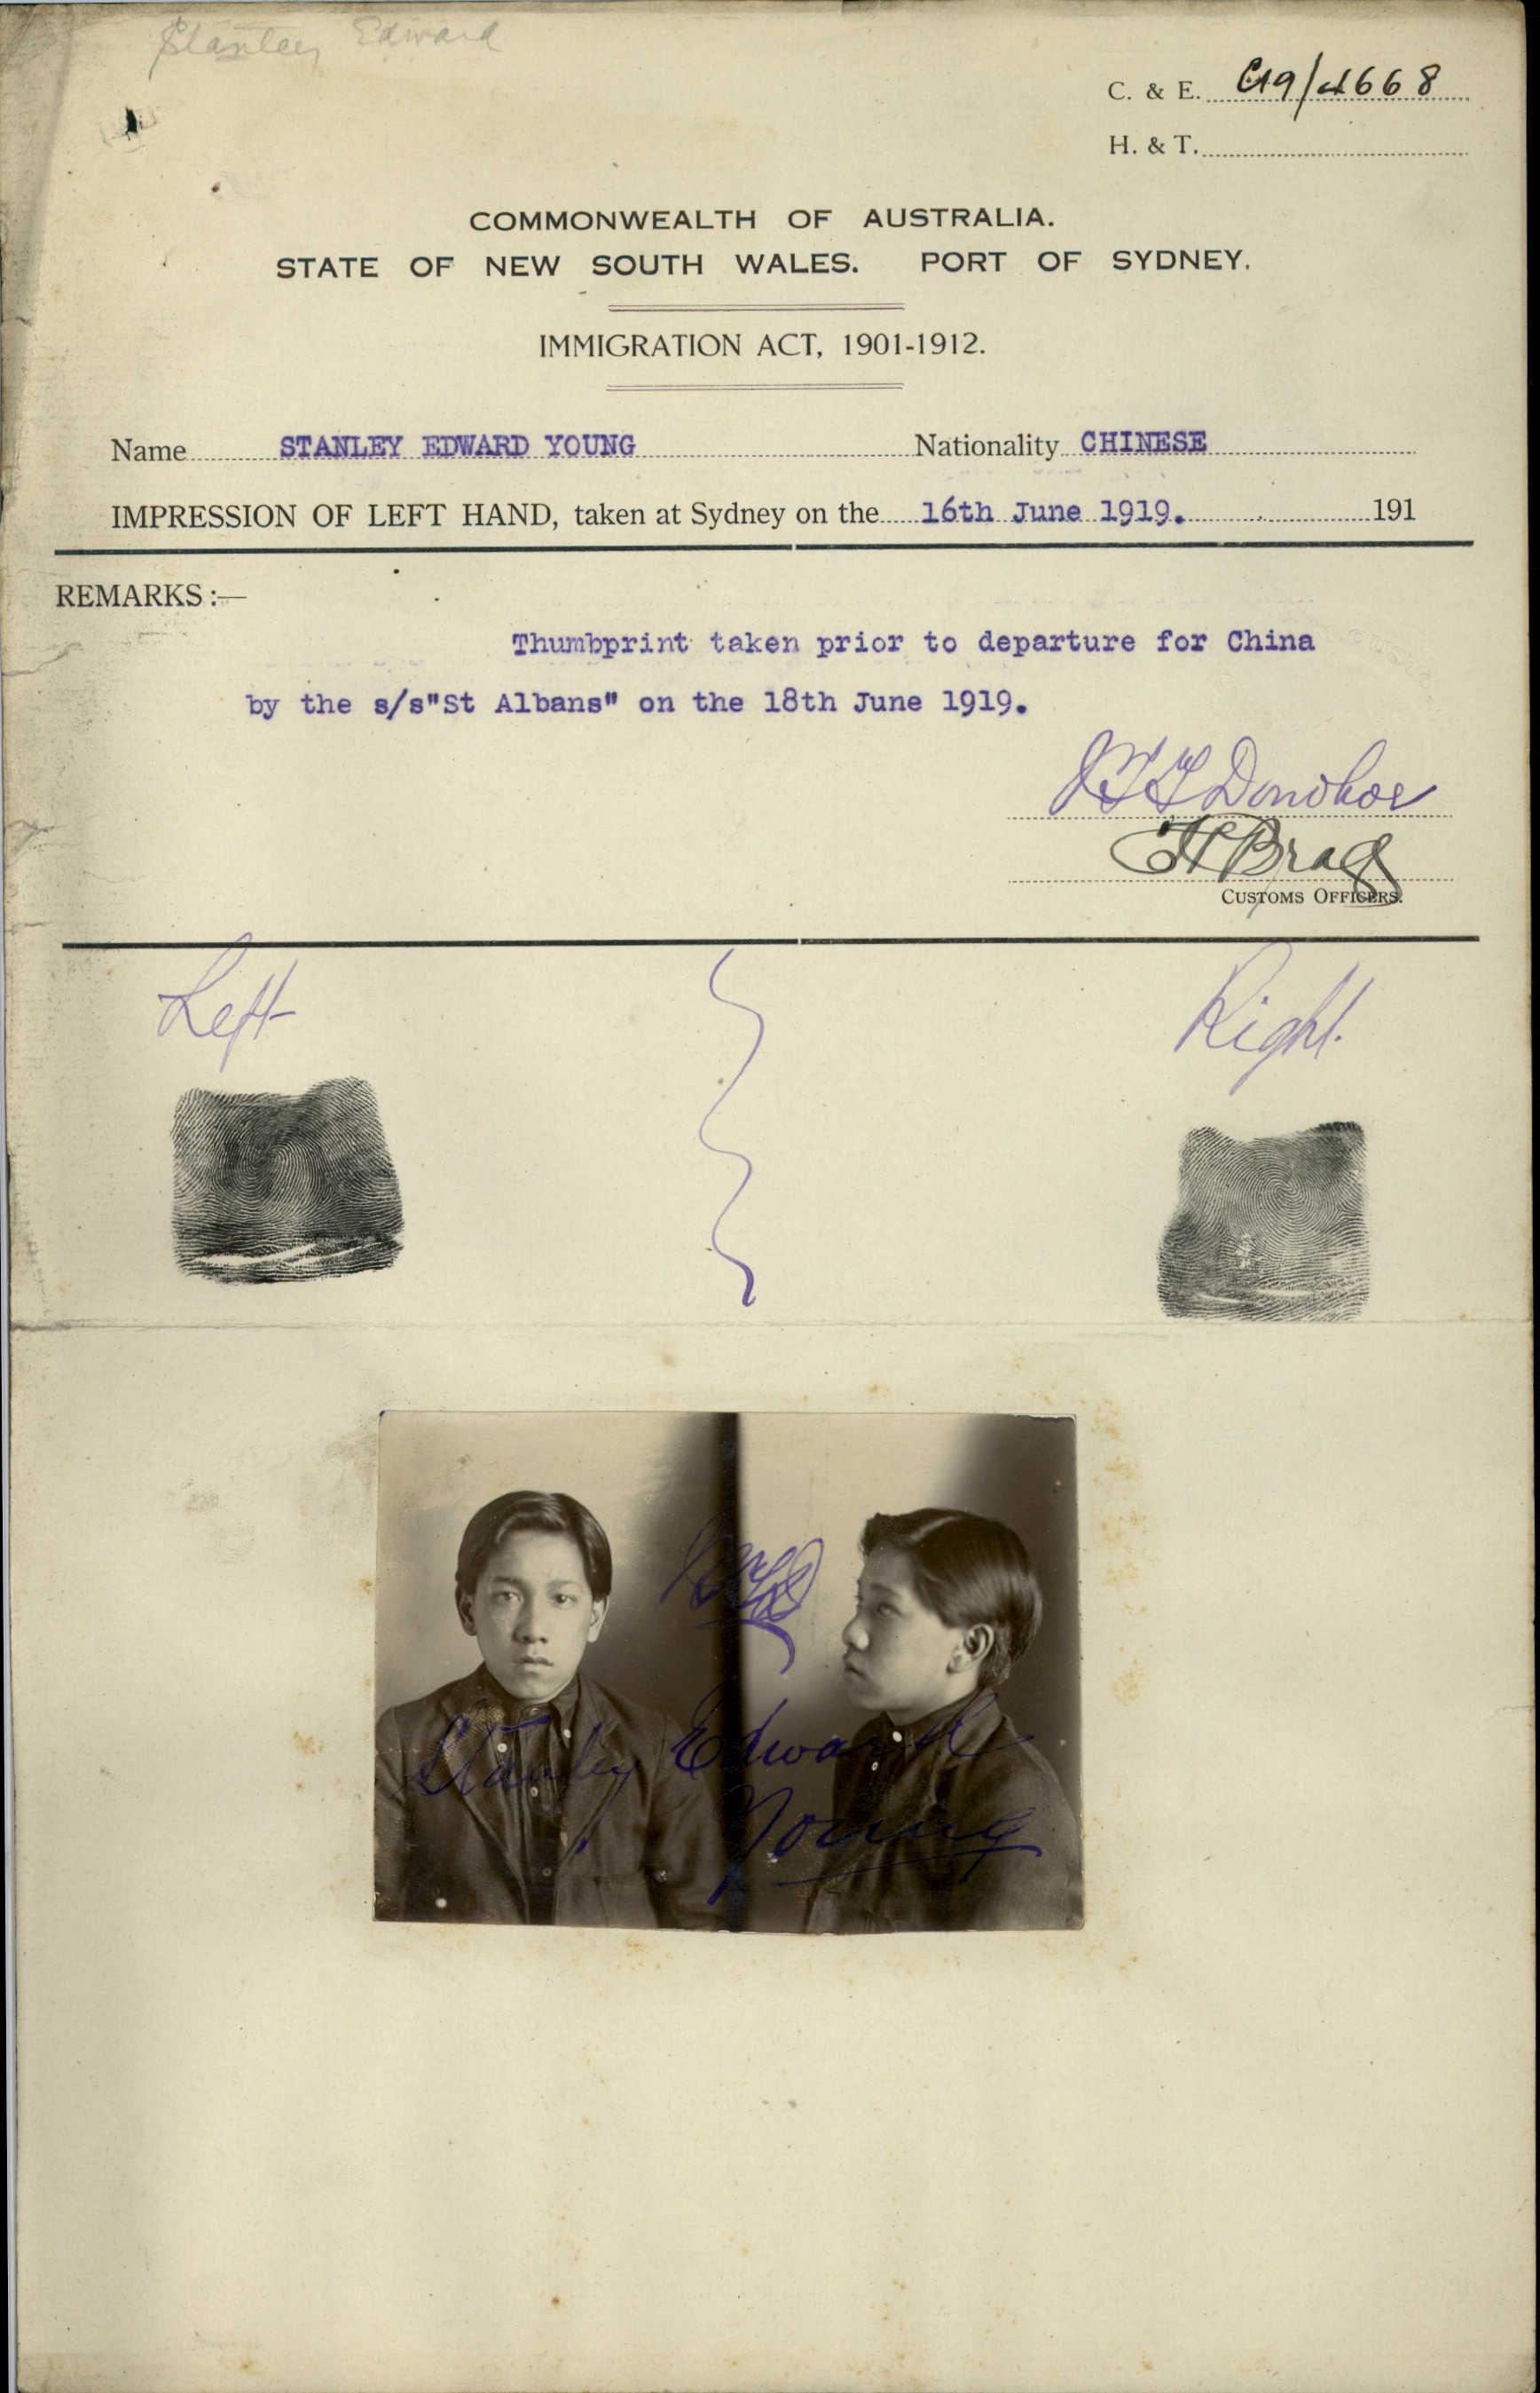 Stanley Edward
C. & E. C19/4668
H. & T.
COMMONWEALTH OF AUSTRALIA.
STATE OF NEW SOUTH WALES. PORT OF SYDNEY.
IMMIGRATION ACT, 1901-1912.
Name STANLEY EDWARD YOUNG Nationality CHINESE
IMPRESSION OF LEFT HAND, taken at Sydney on the 16th June 1919. 191
REMARKS :—
Thumbprint taken prior to departure for China
by the s/s"St Albans" on the 18th June 1919.
Donohoe
Bragg
CUSTOMS OFFICERS.
Left Right.
Stanley Edward
Young